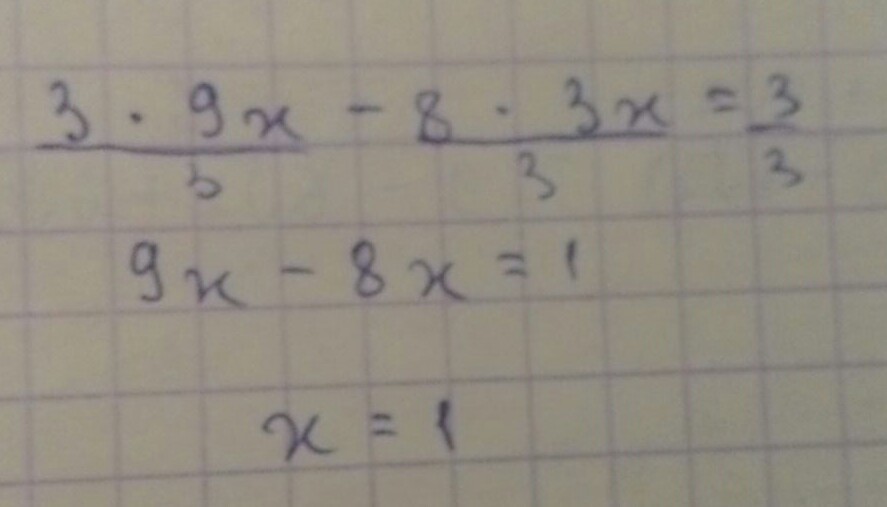 3 · 9x - 8 · 3x = 3
3 3 3
9x - 8x = 1
x = 1